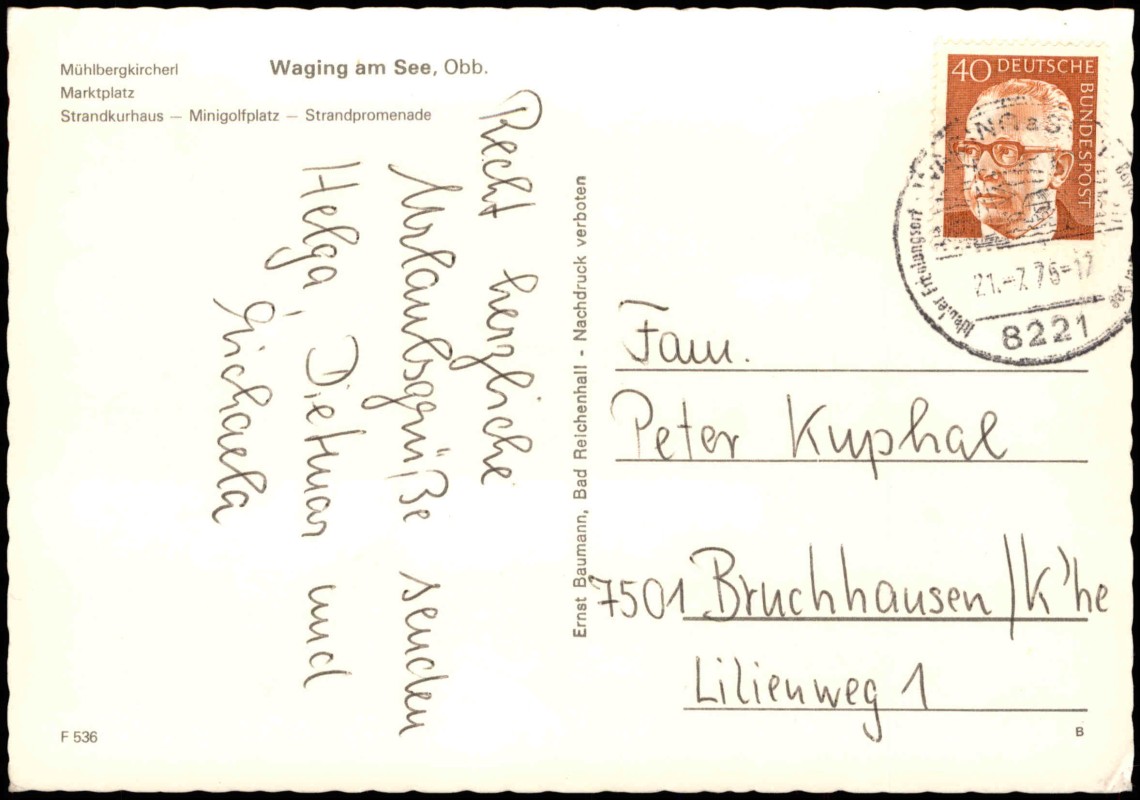 Mühlbergkircherl
Marktplatz
Strandkurhaus — Minigolfplatz — Strandpromenade
Waging am See, Obb.
Recht herzliche
Urlaubsgrüße senden
Helga, Dietmar und
Michaela
Ernst Baumann, Bad Reichenhall - Nachdruck verboten
40 DEUTSCHE
BUNDESPOST
Idealer Erholungsort
21.-7.76-17
8221
Fam.
Peter Kuphal
7501 Bruchhausen /K'he
Lilienweg 1
F 536
B